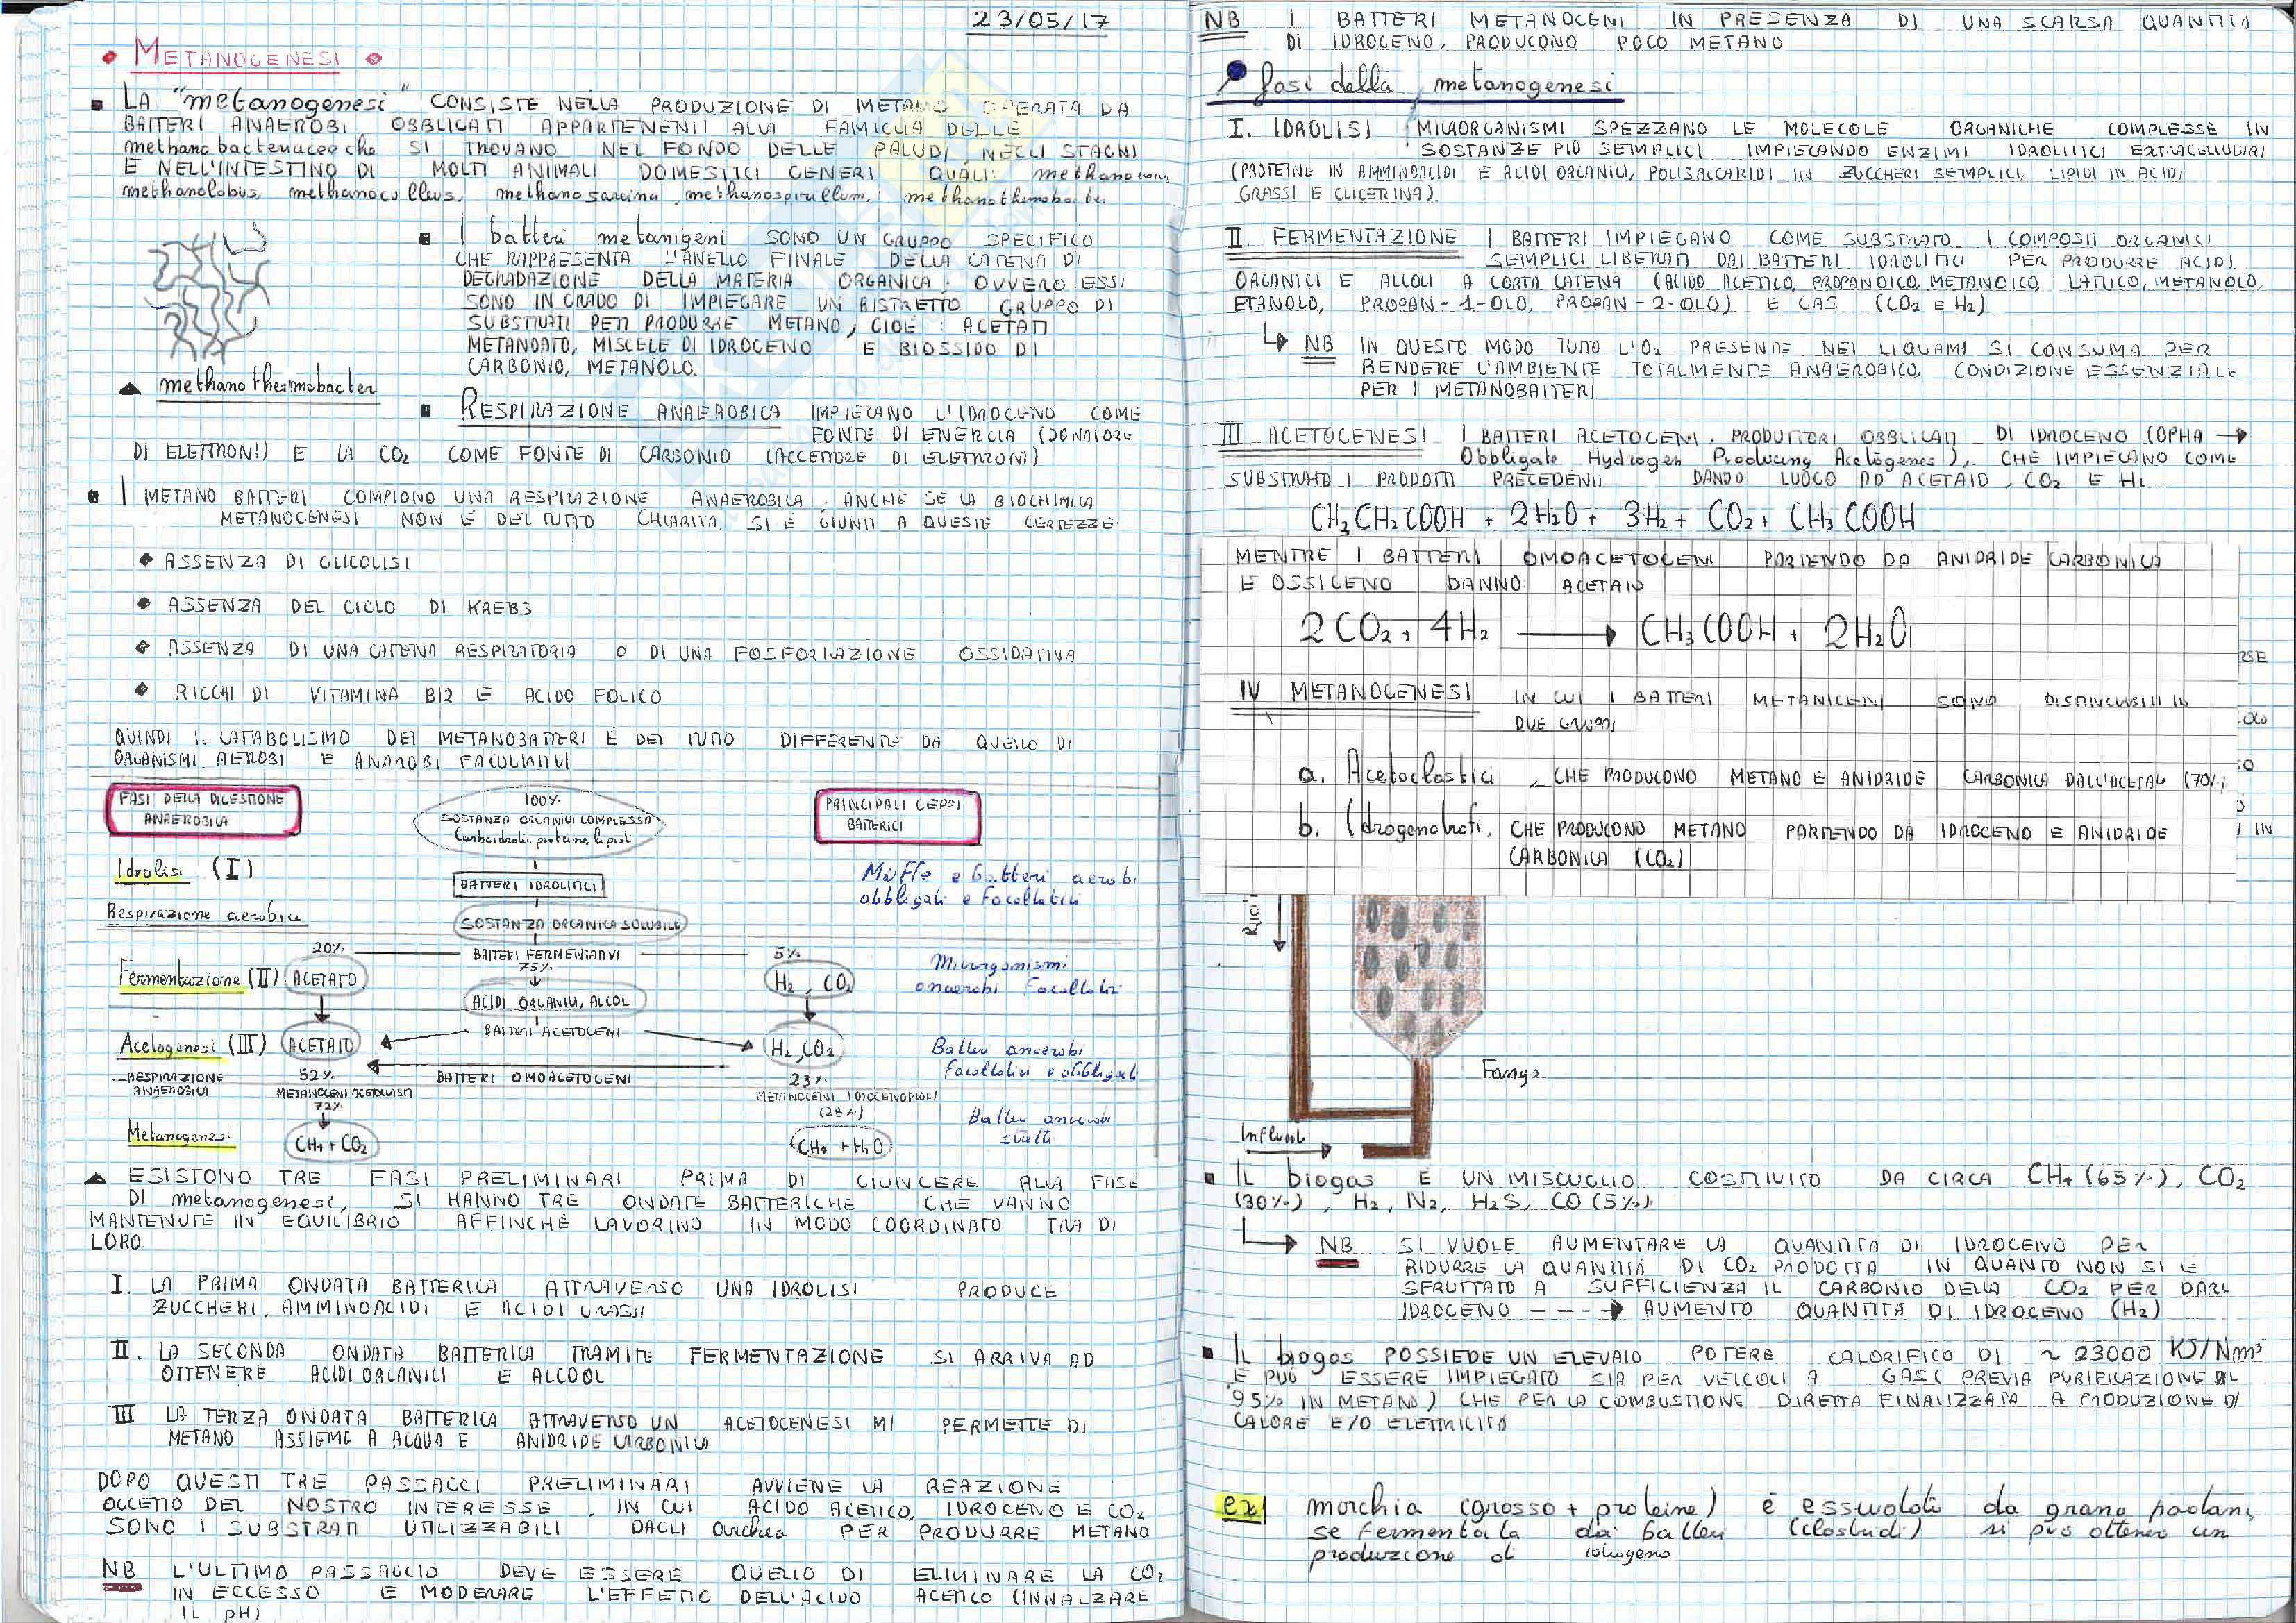 23/05/17
• METANOGENESI •
LA "metanogenesi" CONSISTE NELLA PRODUZIONE DI METANO OPERATA DA
BATTERI ANAEROBI OBBLIGATI APPARTENENTI ALLA FAMIGLIA DELLE
methanobacteriacee che SI TROVANO NEL FONDO DELLE PALUDI, NEGLI STAGNI
E NELL'INTESTINO DI MOLTI ANIMALI DOMESTICI GENERI QUALI:
methanolobus, methanoculleus, methanosarcina, methanospirillum,
I batteri metanigeni SONO UN GRUPPO SPECIFICO
CHE RAPPRESENTA L'ANELLO FINALE DELLA CATENA DI
DEGRADAZIONE DELLA MATERIA ORGANICA. OVVERO ESSI
SONO IN GRADO DI IMPIEGARE UN RISTRETTO GRUPPO DI
SUBSTRATI PER PRODURRE METANO, CIOÈ: ACETATI
METANOATO, MISCELE DI IDROGENO E BIOSSIDO DI
CARBONIO, METANOLO.
▲ methanothermobacter
RESPIRAZIONE ANAEROBICA IMPIEGANO L'IDROGENO COME
FONTE DI ENERGIA (DONATORE
DI ELETTRONI) E LA CO2 COME FONTE DI CARBONIO (ACCETTORE DI ELETTRONI)
I METANO BATTERI COMPIONO UNA RESPIRAZIONE ANAEROBICA. ANCHE SE LA BIOCHIMICA
METANOGENESI NON È DEL TUTTO CHIARITA, SI È GIUNTI A QUESTE CERTEZZE:
◆ ASSENZA DI GLICOLISI
◆ ASSENZA DEL CICLO DI KREBS
◆ ASSENZA DI UNA CATENA RESPIRATORIA O DI UNA FOSFORILAZIONE OSSIDATIVA
◆ RICCHI DI VITAMINA B12 E ACIDO FOLICO
QUINDI IL CATABOLISMO DEI METANOBATTERI È DEL TUTTO DIFFERENTE DA QUELLO DI
ORGANISMI AEROBI E ANAROBI FACOLTATIVI
FASI DELLA DIGESTIONE
ANAEROBICA
100%
SOSTANZA ORGANICA COMPLESSA
Carboidrati, proteine, lipidi
PRINCIPALI CEPPI
BATTERICI
Idrolisi (I)
BATTERI IDROLITICI
Muffe e batteri aerobi
obbligati e facoltativi
Respirazione aerobica
SOSTANZA ORGANICA SOLUBILE
20%
BATTERI FERMENTATIVI
75%
5%
Fermentazione (II) ACETATO
ACIDI ORGANICI, ALCOL
H2, CO2
Microrganismi
anaerobi facoltativi
BATTERI ACETOGENI
Acetogenesi (III) ACETATO
H2, CO2
Batteri anaerobi
facoltativi e obbligati
RESPIRAZIONE
ANAEROBICA
52%
BATTERI OMOACETOGENI
23%
METANOGENI ACETOCLASTI
72%
METANOGENI IDROGENOTROFI
(28%)
Metanogenesi
CH4 + CO2
CH4 + H2O
Batteri anaerobi
stretti
▲ ESISTONO TRE FASI PRELIMINARI PRIMA DI GIUNGERE ALLA FASE
DI metanogenesi, SI HANNO TRE ONDATE BATTERICHE CHE VANNO
MANTENUTE IN EQUILIBRIO AFFINCHÈ LAVORINO IN MODO COORDINATO TRA DI
LORO.
I. LA PRIMA ONDATA BATTERICA ATTRAVERSO UNA IDROLISI PRODUCE
ZUCCHERI, AMMINOACIDI E ACIDI GRASSI
II. LA SECONDA ONDATA BATTERICA TRAMITE FERMENTAZIONE SI ARRIVA AD
OTTENERE ACIDI ORGANICI E ALCOOL
III LA TERZA ONDATA BATTERICA ATTRAVERSO UN ACETOGENESI MI PERMETTE DI
METANO ASSIEME A ACQUA E ANIDRIDE CARBONICA
DOPO QUESTI TRE PASSAGGI PRELIMINARI AVVIENE LA REAZIONE
OGGETTO DEL NOSTRO INTERESSE, IN CUI ACIDO ACETICO, IDROGENO E CO2
SONO I SUBSTRATI UTILIZZABILI DAGLI archea PER PRODURRE METANO
NB L'ULTIMO PASSAGGIO DEVE ESSERE QUELLO DI ELIMINARE LA CO2
IN ECCESSO E MODERARE L'EFFETTO DELL'ACIDO ACETICO (INNALZARE
IL pH)
NB I BATTERI METANOGENI IN PRESENZA DI UNA SCARSA QUANTITÀ
DI IDROGENO, PRODUCONO POCO METANO
fasi della metanogenesi
I. IDROLISI MICRORGANISMI SPEZZANO LE MOLECOLE ORGANICHE COMPLESSE IN
SOSTANZE PIÙ SEMPLICI IMPIEGANDO ENZIMI IDROLITICI EXTRACELLULARI
(PROTEINE IN AMMINOACIDI E ACIDI ORGANICI, POLISACCARIDI IN ZUCCHERI SEMPLICI, LIPIDI IN ACIDI
GRASSI E GLICERINA).
II. FERMENTAZIONE I BATTERI IMPIEGANO COME SUBSTRATO I COMPOSTI ORGANICI
SEMPLICI LIBERATI DAI BATTERI IDROLITICI PER PRODURRE ACIDI
ORGANICI E ALCOLI A CORTA CATENA (ACIDO ACETICO, PROPANOICO, METANOICO, LATTICO, METANOLO,
ETANOLO, PROPAN-1-OLO, PROPAN-2-OLO) E GAS (CO2 E H2)
↳ NB IN QUESTO MODO TUTTO L'O2 PRESENTE NEI LIQUAMI SI CONSUMA PER
RENDERE L'AMBIENTE TOTALMENTE ANAEROBICO, CONDIZIONE ESSENZIALE
PER I METANOBATTERI
III ACETOGENESI I BATTERI ACETOGENI, PRODUTTORI OBBLIGATI DI IDROGENO (OPHA →
Obbligate Hydrogen Producing Acetogenes), CHE IMPIEGANO COME
SUBSTRATO I PRODOTTI PRECEDENTI DANDO LUOGO AD ACETATO, CO2 E H2
CH3CH2COOH + 2H2O + 3H2 + CO2 + CH3COOH
MENTRE I BATTERI OMOACETOGENI PARTENDO DA ANIDRIDE CARBONICA
E OSSIGENO DANNO ACETATO
2CO2 + 4H2 → CH3COOH + 2H2O
IV METANOGENESI IN CUI I BATTERI METANIGENI SONO DISTINGUIBILI IN
DUE GRUPPI
a. Acetoclastici, CHE PRODUCONO METANO E ANIDRIDE CARBONICA DALL'ACETATO (70%)
b. Idrogenotrofi, CHE PRODUCONO METANO PARTENDO DA IDROGENO E ANIDRIDE
CARBONICA (CO2)
Fango
Influent
Il biogas È UN MISCUGLIO COSTITUITO DA CIRCA CH4 (65%), CO2
(30%), H2, N2, H2S, CO (5%)
↳ NB SI VUOLE AUMENTARE LA QUANTITÀ DI IDROGENO PER
RIDURRE LA QUANTITÀ DI CO2 PRODOTTA IN QUANTO NON SI È
SFRUTTATO A SUFFICIENZA IL CARBONIO DELLA CO2 PER DARE
IDROGENO ----→ AUMENTO QUANTITÀ DI IDROGENO (H2)
Il biogas POSSIEDE UN ELEVATO POTERE CALORIFICO DI ~ 23000 KJ/Nm³
E PUÒ ESSERE IMPIEGATO SIA PER VEICOLI A GAS( PREVIA PURIFICAZIONE AL
95% IN METANO) CHE PER LA COMBUSTIONE DIRETTA FINALIZZATA A PRODUZIONE DI
CALORE E/O ELETTRICITÀ
ex morchia (grosso + proteine) è da grana padani,
se fermentata da batteri (clostridi) si può ottenere un
produzione di idrogeno